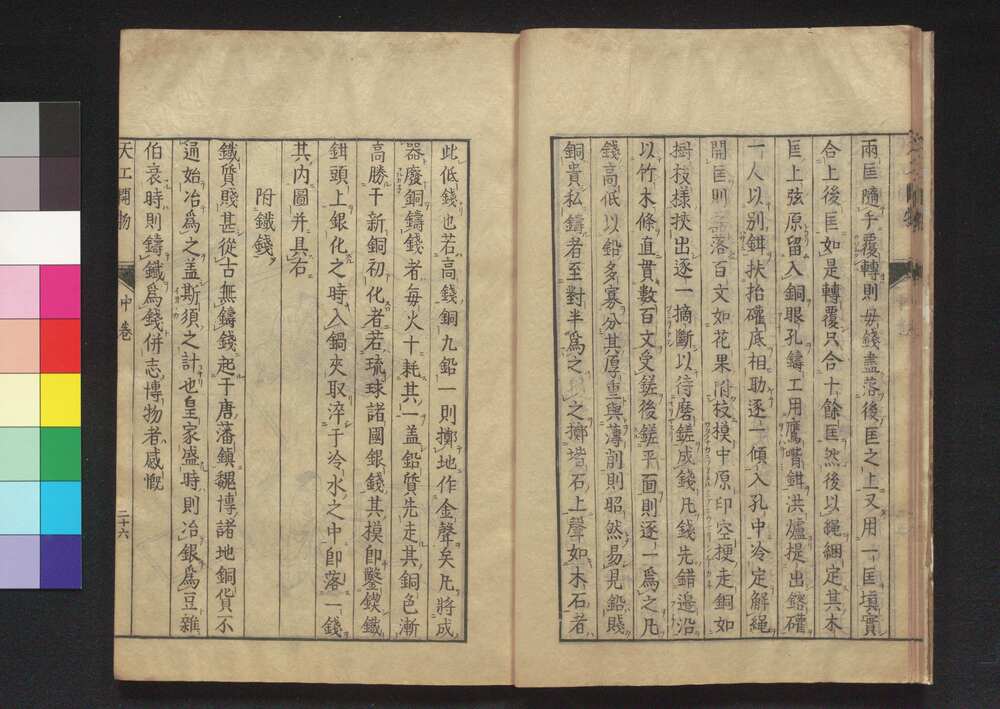 兩匡隨手覆轉則母錢盡落後匡之上又用一匡填實
合上後匡如是轉覆只合十餘匡然後以繩綑定其木
匡上弦原留入銅眼孔鑄工用鷹嘴鉗洪爐提出鎔礶
一人以別鉗扶抬礶底相助逐一傾入孔中冷定解繩
開匡則 落百文如花果附枝模中原印空梗走銅如
樹枝樣挾出逐一摘斷以待磨鎈成錢凡錢先錯邊沿
以竹木條直貫數百文受鎈後鎈平面則逐一爲之凡
錢高低以鉛多寡分其厚重與薄削則昭然易見鉛賤
銅貴私鑄者至對半爲之 之擲堦石上聲如木石者
此低錢也若高錢銅九鉛一則擲地作金聲矣凡將成
器廢銅鑄錢者每火十耗其一盖鉛質先走其銅色漸
高勝于新銅初化者若琉球諸國銀錢其模即鑿鍥鐵
鉗頭上銀化之時入鍋夾取淬于冷水之中即落一錢
其内圖并具右
附鐵錢
鐵質賤甚從古無鑄錢起于唐藩鎮魏博諸地銅貨不
通始冶爲之盖斯須之計也皇家盛時則冶銀爲豆雜
伯衰時則鑄鐵爲錢併志博物者感慨
天工開物
中卷
二十六